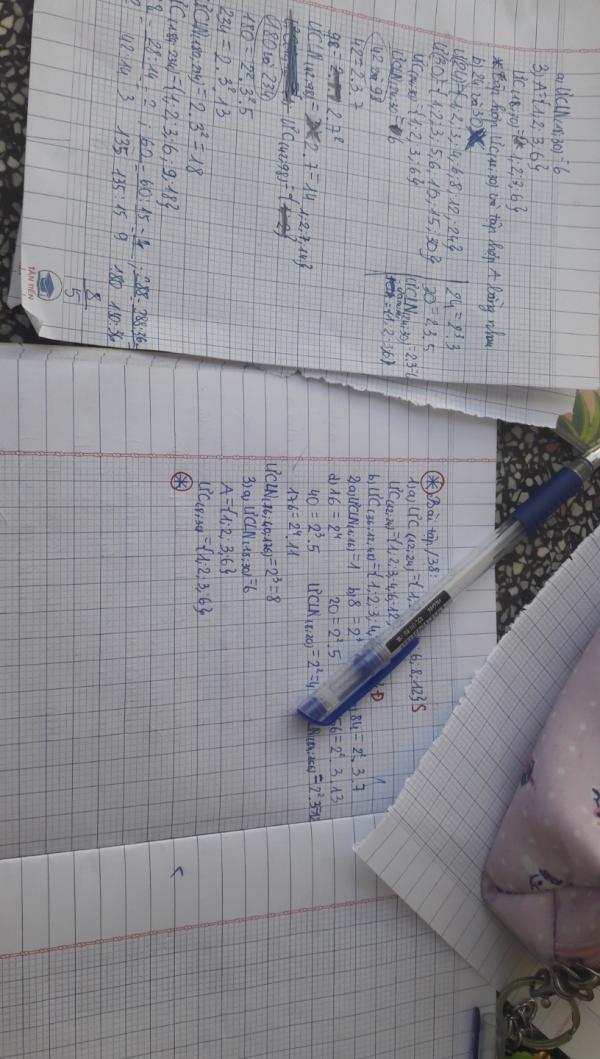 a) ƯCLN(18,30) = 6
3) A = {1,2,3,6}
ƯC(18,30) = {1,2,3,6}
* Tập hợp ƯC(18,30) và tập hợp A bằng nhau
b) 24 và 30
Ư(24) = {1,2,3,4,6,8,12,24}
Ư(30) = {1,2,3,5,6,10,15,30}
ƯC(24,30) = {1,2,3,6}
ƯCLN(24,30) = 6
24 = 2³.3
30 = 2.3.5
ƯCLN(24,30) = 2.3=6
= {1,2,3,6}
42 và 98
42 = 2.3.7
98 = 2.7²
ƯCLN(42,98) = 2.7 = 14
ƯC(42,98) = {1;2;7;14}
180 và 234
180 = 2².3².5
234 = 2.3².13
ƯCLN(180,234) = 2.3² = 18
ƯC(180,234) = {1,2,3,6,9,18}
28:14 2 60 60:15 4 288 288:36
42:14 3 135 135:15 9 180 180:36
8
5
TÂN TIẾN
* Bài tập /38:
1) a) ƯC(12,24) = {1, 6,8,12} S
= {1;2;3;4;6;12
b) ƯC = {1;2;3;4, Đ
2) a) ƯCLN = 1 b) 8 = 2³ 84 = 2².3.7
d) 16 = 2⁴ 20 = 2².5 56 = 2².3.13
40 = 2³.5 ƯCLN(8,20) = 2² = 4
176 = 2⁴.11
ƯCLN(16,40,176) = 2³ = 8
3) a) ƯCLN(18,30) = 6
A = {1;2;3;6}
* ƯC(18,30) = {1;2;3;6}